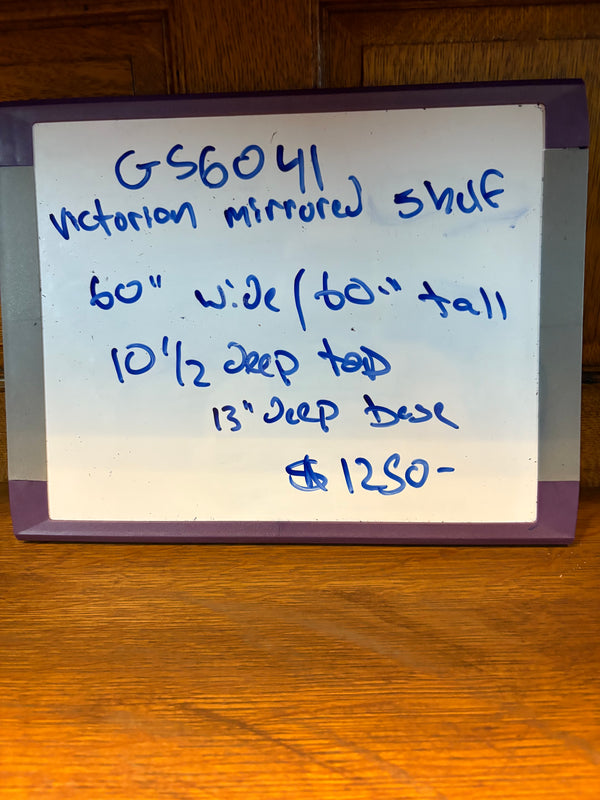 GS6041
Victorian mirrored shelf
60" wide / 60" tall
10 1/2 deep top
13" deep base
$ 1250-